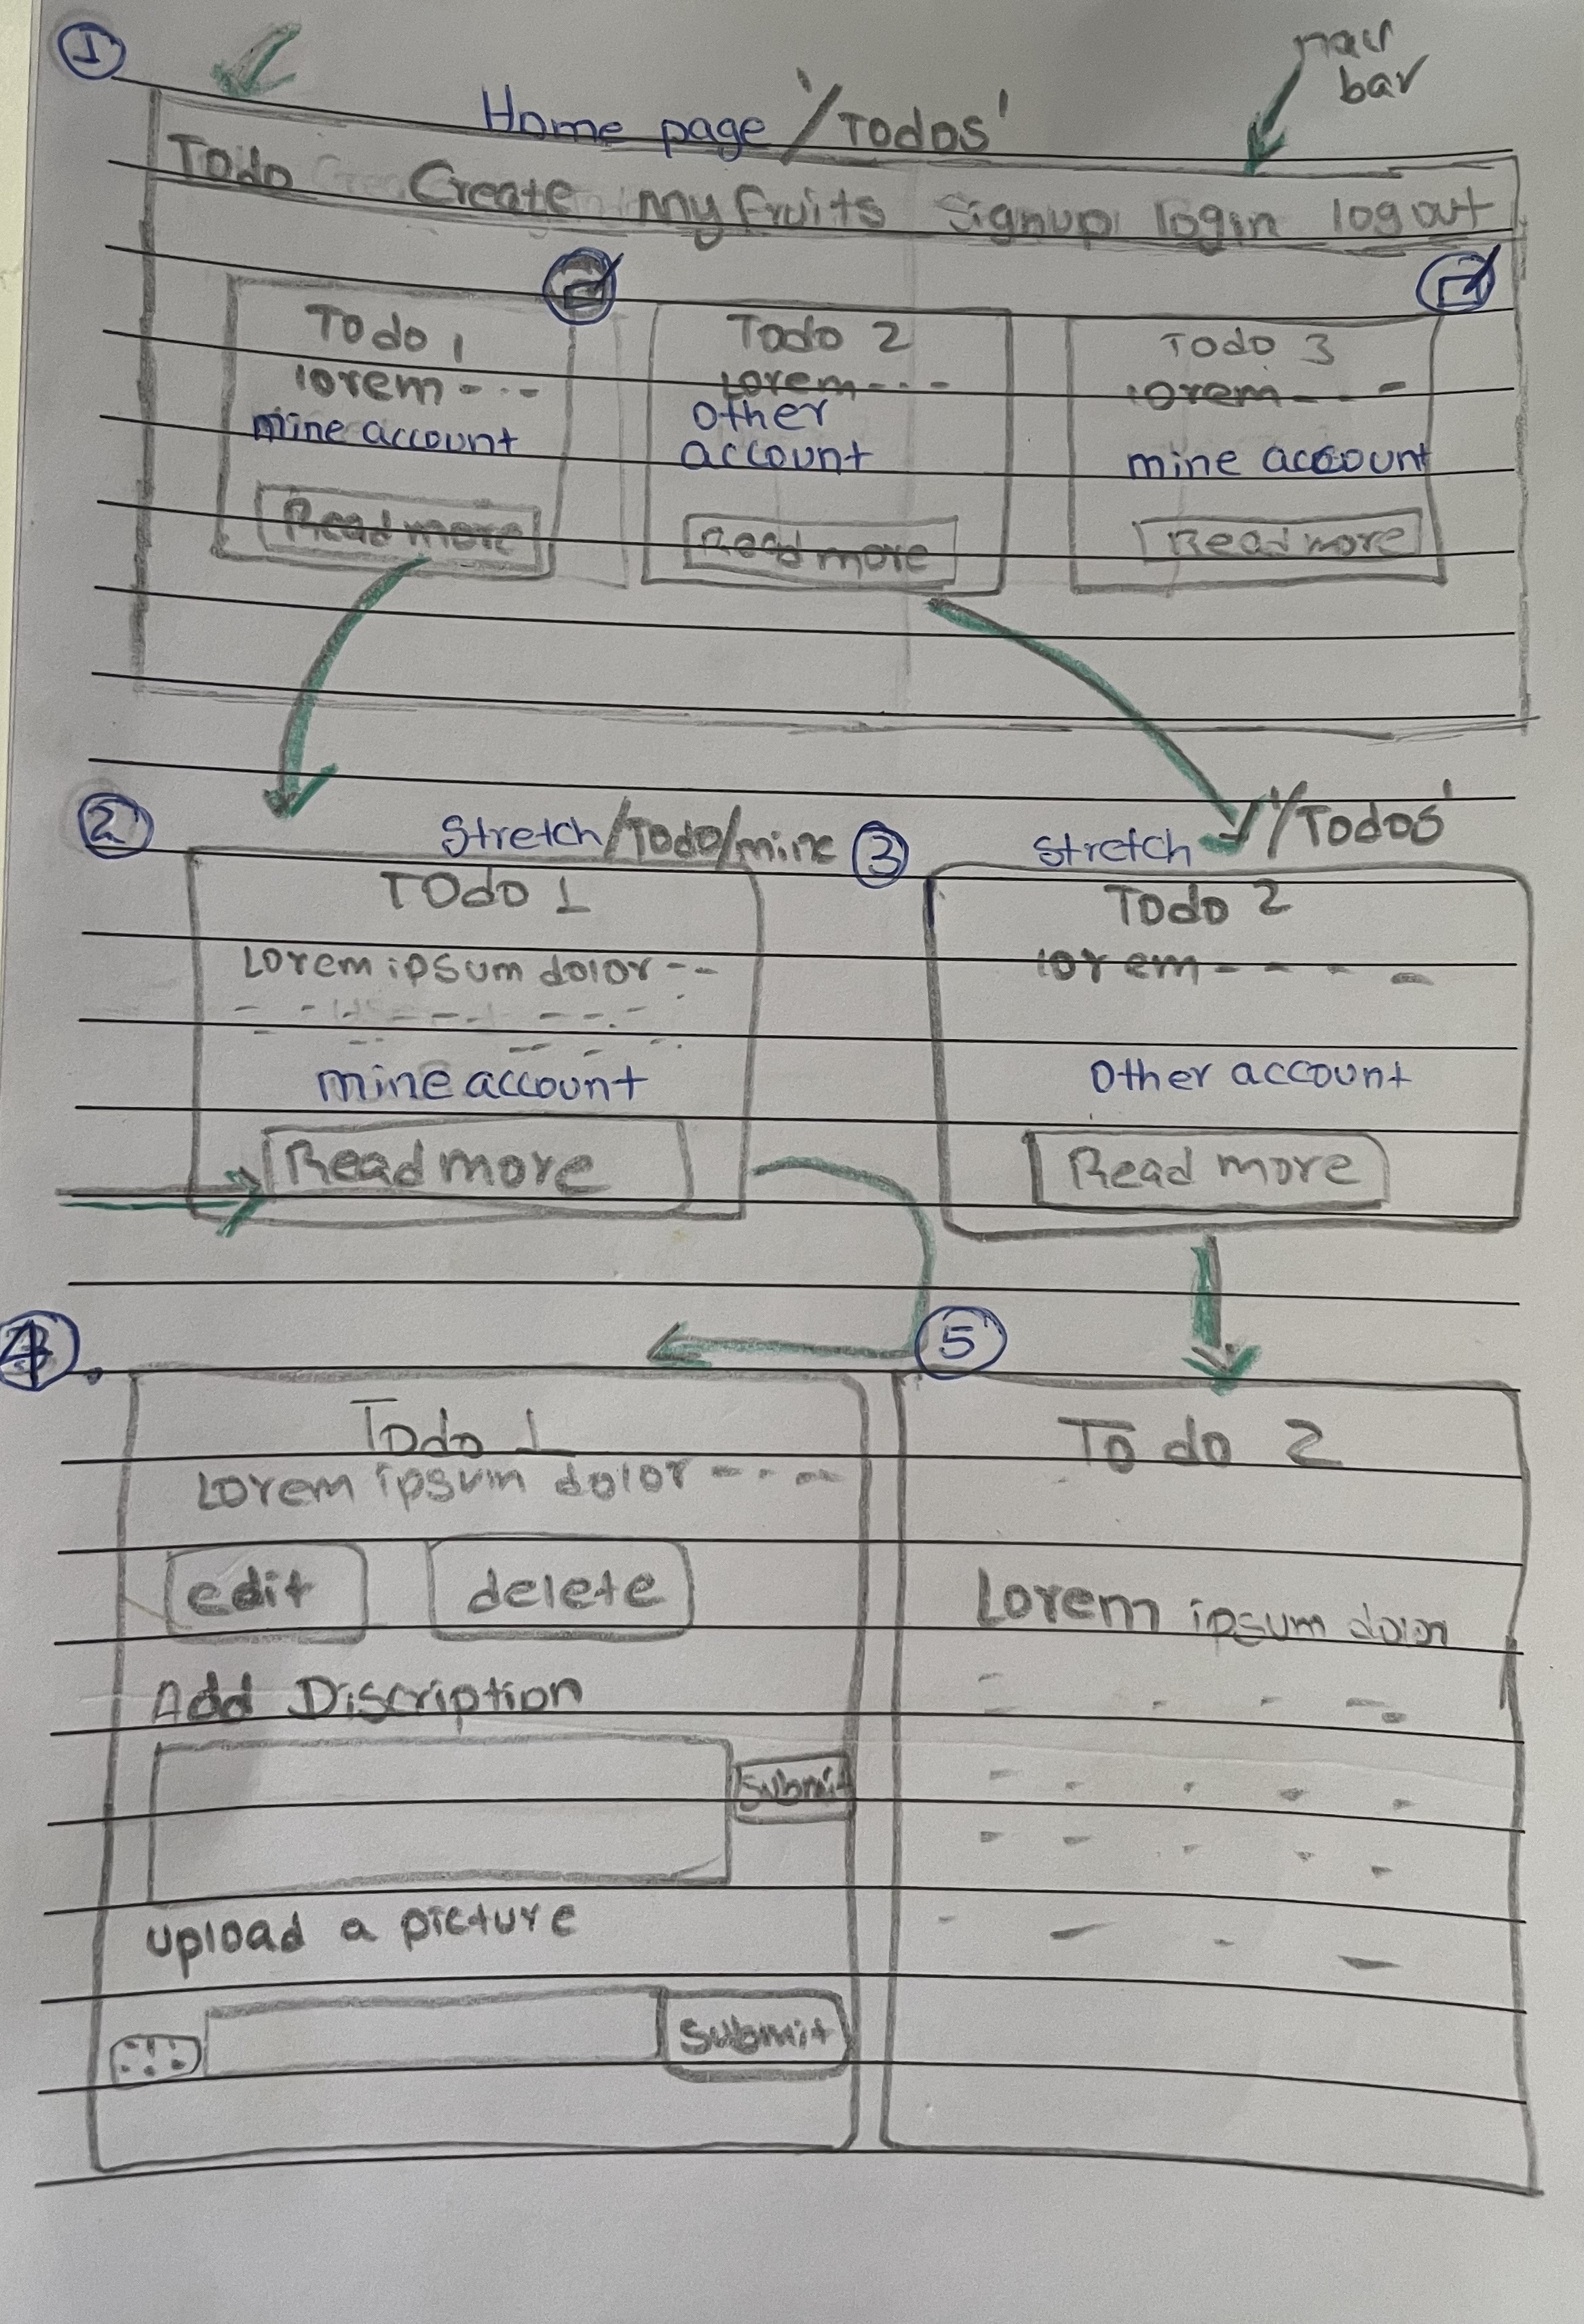 1
nav
bar
Home page '/Todos'
Todo Create My fruits Signup login logout
Todo 1
lorem - - -
mine account
Read more
Todo 2
Lorem - - -
other
account
Read more
Todo 3
lorem - - -
mine account
Read more
2
Stretch /Todo/mine
TOdo 1
Lorem ipsum dolor - -
mine account
Read more
3
Stretch '/Todos'
Todo 2
lorem - - - -
Other account
Read more
4
Todo 1
Lorem ipsum dolor - - - -
edit delete
Add Discription
Submit
upload a picture
Submit
5
To do 2
Lorem ipsum dolor